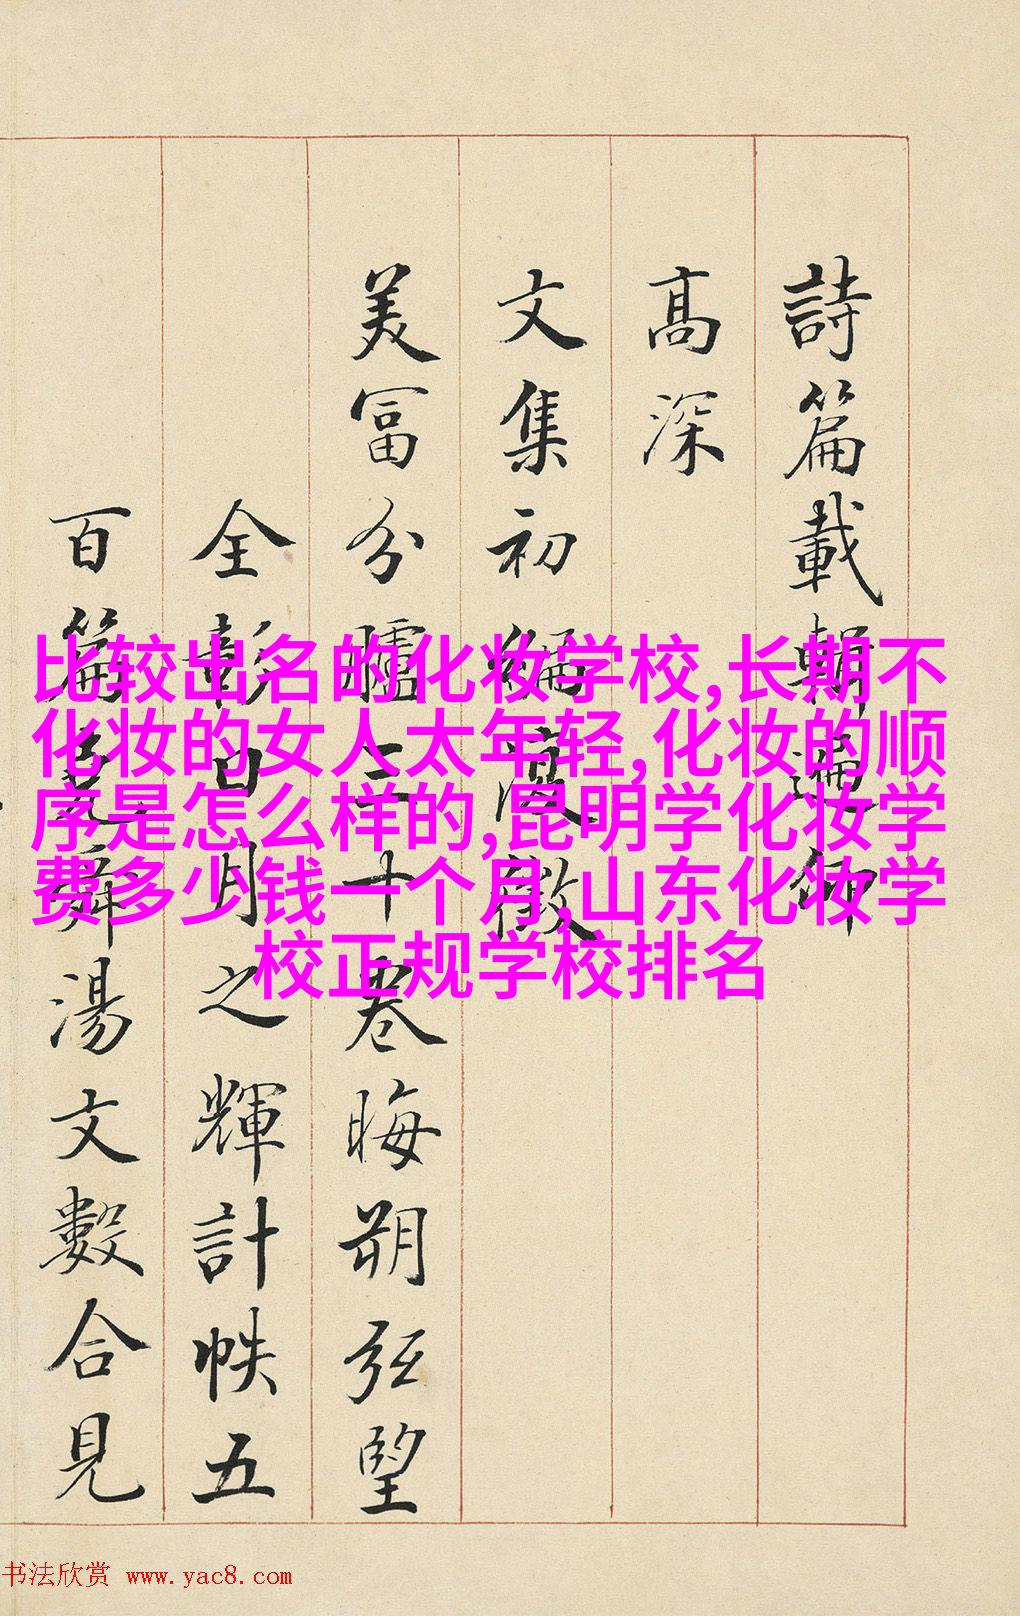 詩篇載遍仰
高深
文集初編復徵
美富分臚三十卷晦朔弦望
全彰日月之輝計帙五
百篇堯舜湯文數合見
比较出名的化妆学校,长期不
化妆的女人太年轻,化妆的顺
序是怎么样的,昆明学化妆学
费多少钱一个月,山东化妆学
校正规学校排名
书法欣赏 www.yac8.com